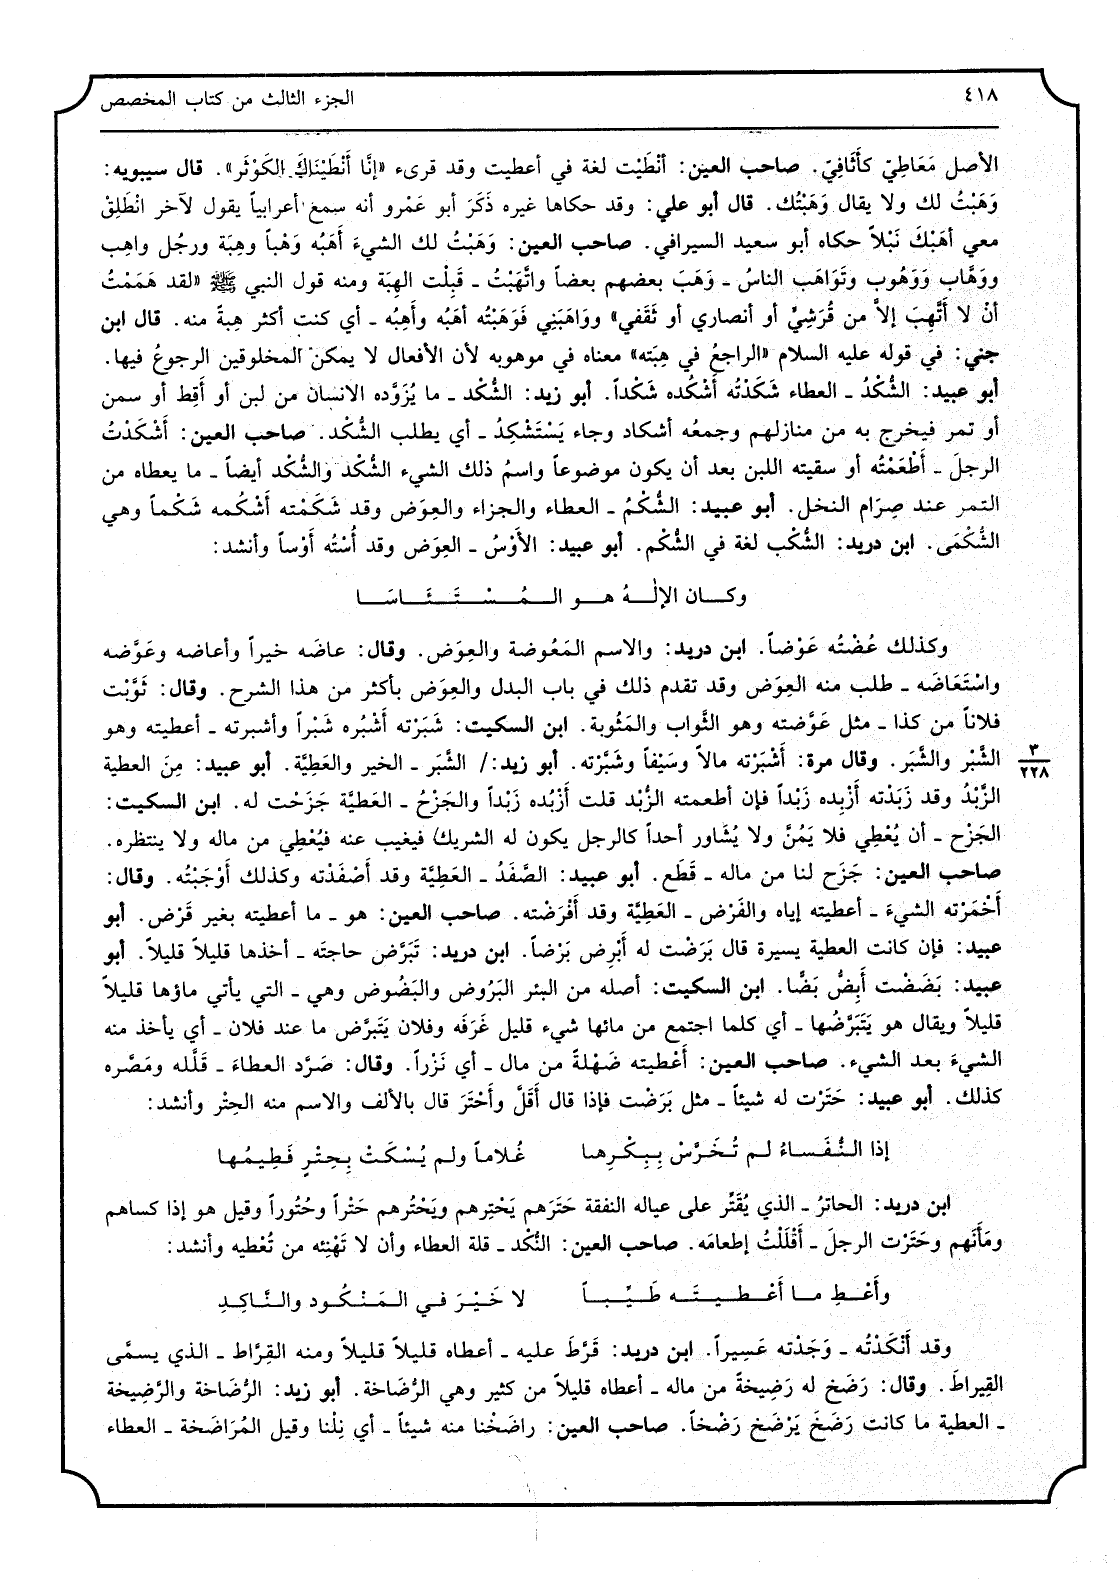 ٤١٨
الجزء الثالث من كتاب المخصص
الأصل مَعَاطِيّ كأَثَافِيّ. صاحب العين: أَنْطَيْت لغة في أعطيت وقد قرىء «إنَّا أَنْطَيْنَاكَ الكَوْثَر». قال سيبويه:
وَهَبْتُ لك ولا يقال وَهَبْتُك. قال أبو علي: وقد حكاها غيره ذَكَرَ أبو عَمْرو أنه سمع أعرابياً يقول لآخر انْطَلِقْ
معي أهَبْكَ نَبْلاً حكاه أبو سعيد السيرافي. صاحب العين: وَهَبْتُ لك الشيءَ أَهَبُه وَهْباً وهِبَة ورجُل واهِب
ووَهَّاب ووَهُوب وتَوَاهَب الناسُ ـ وَهَبَ بعضهم بعضاً واتَّهَبْتُ ـ قَبِلْت الهِبَة ومنه قول النبي ﷺ «لقد هَمَمْتُ
أنْ لا أَتَّهِبَ إلاَّ من قُرَشِيٍّ أو أنصاري أو ثَقَفي» ووَاهَبَنِي فَوَهَبْتُه أهَبُه وأهِبُه ـ أي كنت أكثر هِبةً منه. قال ابن
جني: في قوله عليه السلام «الراجعُ في هِبَته» معناه في موهوبه لأن الأفعال لا يمكن المخلوقين الرجوعُ فيها.
أبو عبيد: الشُّكْدُ ـ العطاء شَكَدْتُه أَشْكُده شَكْداً. أبو زيد: الشُّكْد ـ ما يُزَوَّده الانسان من لبن أو أَقِط أو سمن
أو تمر فيخرج به من منازلهم وجمعُه أشكاد وجاء يَسْتَشْكِدُ ـ أي يطلب الشُّكْد. صاحب العين: أَشْكَدْتُ
الرجلَ ـ أَطْعَمْتُه أو سقيته اللبن بعد أن يكون موضوعاً واسمُ ذلك الشيء الشُّكْد والشُّكْد أيضاً ـ ما يعطاه من
التمر عند صِرَام النخل. أبو عبيد: الشُّكْمُ ـ العطاء والجزاء والعِوَض وقد شَكَمْته أَشْكُمه شَكْماً وهي
الشُّكْمَى. ابن دريد: الشُّكْب لغة في الشُّكْم. أبو عبيد: الأَوْسُ ـ العِوَض وقد أُسْتُه أَوْساً وأنشد:
وكان الإلٰهُ هو المُسْتَئَاسَا
وكذلك عُضْتُه عَوْضاً. ابن دريد: والاسم المَعُوضة والعِوَض. وقال: عاضَه خيراً وأعاضه وعَوَّضه
واسْتَعَاضَه ـ طلب منه العِوَض وقد تقدم ذلك في باب البدل والعِوَض بأكثر من هذا الشرح. وقال: ثَوَّبْت
فلاناً من كذا ـ مثل عَوَّضته وهو الثَّواب والمَثُوبة. ابن السكيت: شَبَرْته أَشْبُره شَبْراً وأشبرته ـ أعطيته وهو
الشَّبْر والشَّبَر. وقال مرة: أَشْبَرْته مالاً وسَيْفاً وشَبَّرْته. أبو زيد:/ الشَّبَر ـ الخير والعَطِيَّة. أبو عبيد: مِنَ العطية
٣
٢٢٨
الزَّبْدُ وقد زَبَدْته أَزْبِده زَبْداً فإن أطعمته الزُّبْد قلت أَزْبُده زَبْداً والجَزْحُ ـ العَطيَّة جَزَحْت له. ابن السكيت:
الجَزْح ـ أن يُعْطِي فلا يَمُنَّ ولا يُشَاور أحداً كالرجل يكون له الشريك فيغيب عنه فيُعْطِي من ماله ولا ينتظره.
صاحب العين: جَزَح لنا من ماله ـ قَطَع. أبو عبيد: الصَّفَدُ ـ العَطِيَّة وقد أَصْفَدْته وكذلك أَوْجَبْتُه. وقال:
أَخْمَرْته الشيءَ ـ أعطيته إياه والفَرْض ـ العَطِيَّة وقد أَفْرَضْته. صاحب العين: هو ـ ما أعطيته بغير قَرْض. أبو
عبيد: فإن كانت العطية يسيرة قال بَرَضْت له أَبْرِض بَرْضاً. ابن دريد: تَبَرَّض حاجتَه ـ أخذها قليلاً قليلاً. أبو
عبيد: بَضَضْت أَبِضُّ بَضًّا. ابن السكيت: أصله من البئر البَرُوض والبَضُوض وهي ـ التي يأتي ماؤها قليلاً
قليلاً ويقال هو يَتَبَرَّضُها ـ أي كلما اجتمع من مائها شيء قليل غَرَفَه وفلان يَتَبرَّض ما عند فلان ـ أي يأخذ منه
الشيءَ بعد الشيء. صاحب العين: أَعْطيته ضَهْلةً من مال ـ أي نَزْراً. وقال: صَرَّد العطاءَ ـ قَلَّله ومَصَّره
كذلك. أبو عبيد: حَتَرْت له شيئاً ـ مثل بَرَضْت فإذا قال أَقَلَّ وأَحْتَرَ قال بالألف والاسم منه الحِتْر وأنشد:
إذا النُّفَسَاءُ لم تُخَرَّسْ بِبِكْرِها    غُلاماً ولم يُسْكَتْ بِحِتْرٍ فَطِيمُها
ابن دريد: الحاترُ ـ الذي يُقَتِّر على عياله النفقة حَتَرَهم يَحْتِرهم ويَحْتُرهم حَتْراً وحُتُوراً وقيل هو إذا كساهم
ومَأَنَهم وحَتَرْت الرجلَ ـ أَقْلَلْتُ إطعامَه. صاحب العين: النُّكْد ـ قلة العطاء وأن لا تَهْنِئه من تُعْطيه وأنشد:
وأَعْطِ ما أَعْطيتَه طَيِّباً    لا خَيْرَ في المَنْكُود والنَّاكِدِ
وقد أَنْكَدْتُه ـ وَجَدْته عَسِيراً. ابن دريد: قَرَّطَ عليه ـ أعطاه قليلاً قليلاً ومنه القِرَّاط ـ الذي يسمَّى
القِيراطَ. وقال: رَضَخ له رَضِيخةً من ماله ـ أعطاه قليلاً من كثير وهي الرُّضَاخة. أبو زيد: الرُّضَاخة والرَّضِيخة
ـ العطية ما كانت رَضَخَ يَرْضَخ رَضْخاً. صاحب العين: راضَخْنا منه شيئاً ـ أي نِلْنا وقيل المُرَاضَخة ـ العطاء